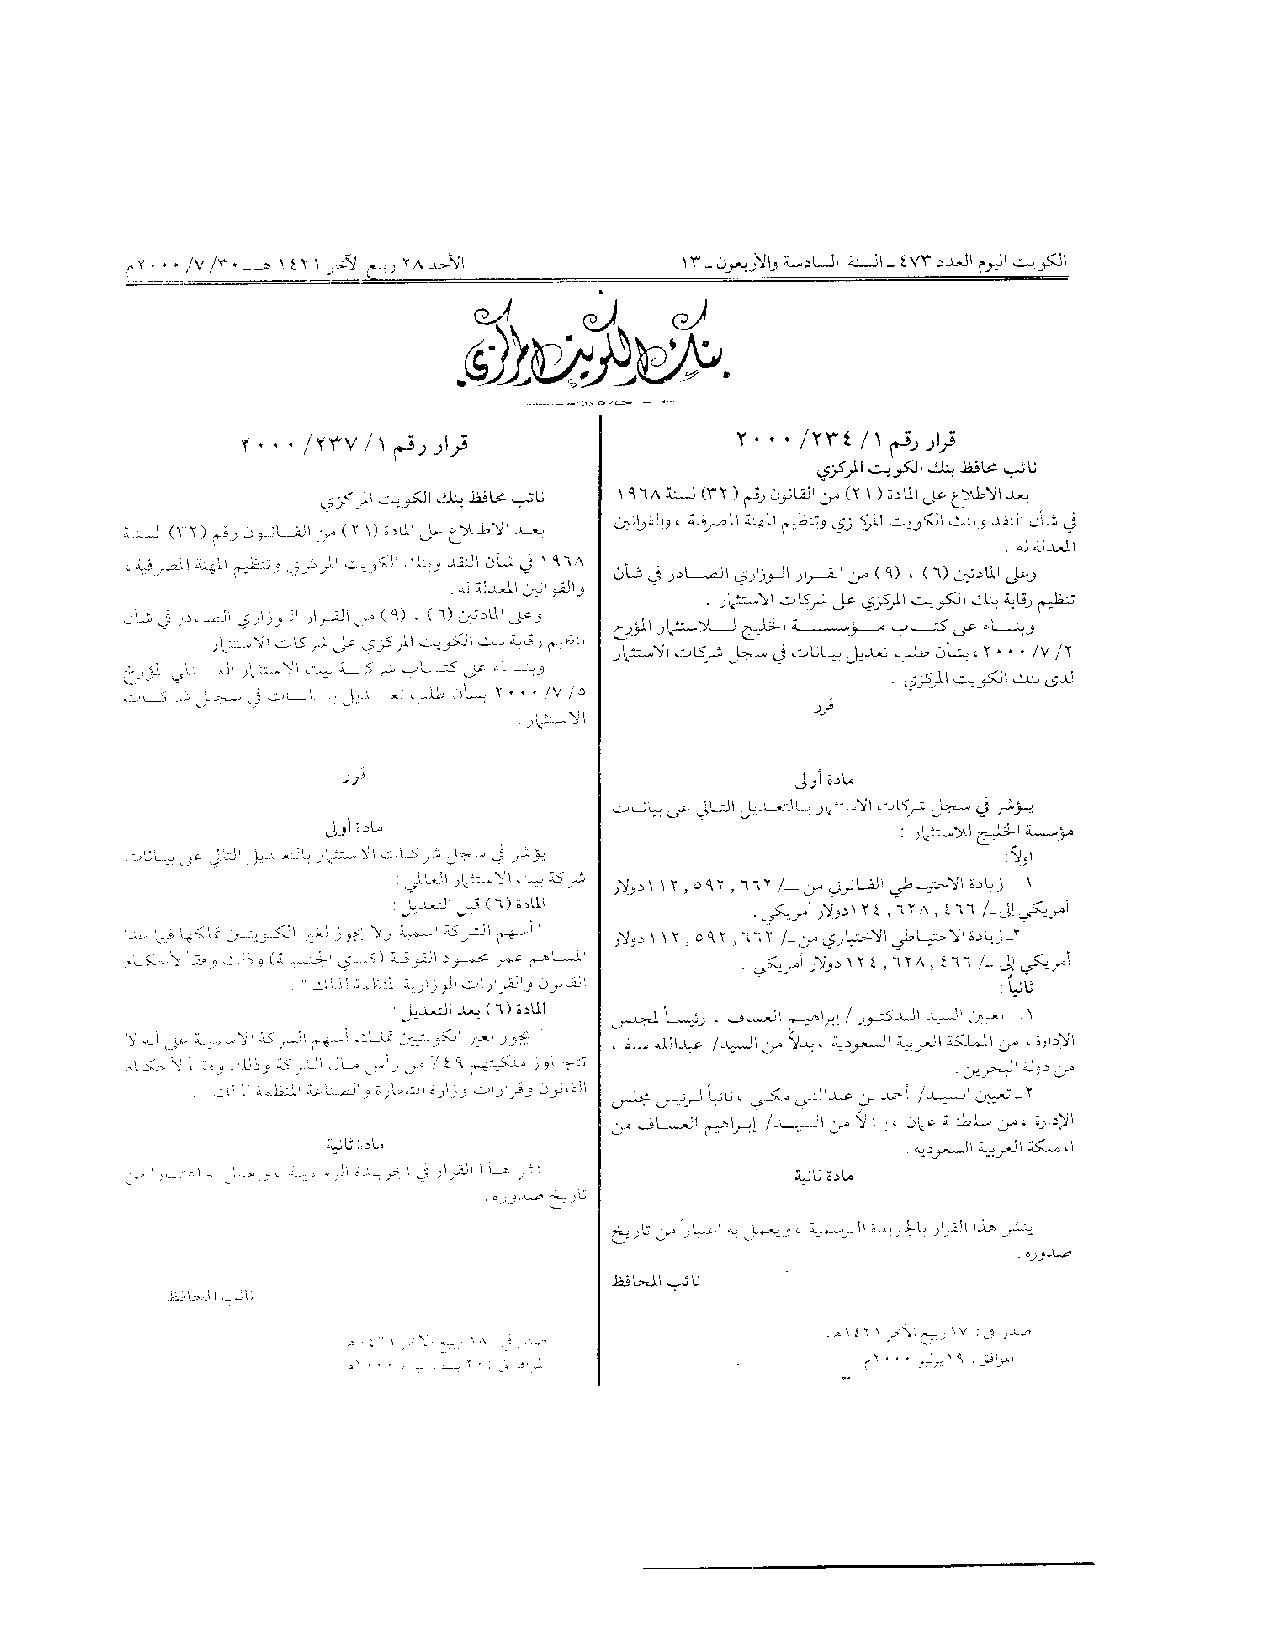 الكويت اليوم العدد ٤٧٣ - السنة السادسة والأربعون - ١٣
الأحد ٢٨ ربيع الآخر ١٤٢١ هـ - ٣٠ / ٧ / ٢٠٠٠ م
بنك الكويت المركزي
قرار رقم ١ / ٢٣٤ / ٢٠٠٠
نائب محافظ بنك الكويت المركزي
بعد الاطلاع على المادة (٢١) من القانون رقم (٣٢) لسنة ١٩٦٨
في شأن النقد وبنك الكويت المركزي وتنظيم المهنة المصرفية ، والقوانين
المعدلة له .
وعلى المادتين (٦) ، (٩) من القرار الوزاري الصادر في شأن
تنظيم رقابة بنك الكويت المركزي على شركات الاستثمار .
وبناء على كتاب مؤسسة الخليج للاستثمار المؤرخ
٢ / ٧ / ٢٠٠٠ ، بشأن طلب تعديل بيانات في سجل شركات الاستثمار
لدى بنك الكويت المركزي .
قرر
مادة أولى
يؤشر في سجل شركات الاستثمار بالتعديل التالي على بيانات
مؤسسة الخليج للاستثمار :
أولاً:
١ - زيادة الاحتياطي القانوني من -/ ٦٦٢ , ٥٩٢ , ١١٢ دولار
أمريكي إلى -/ ٤٦٦ , ٦٢٨ , ١٢٤ دولار أمريكي .
٢ - زيادة الاحتياطي الاختياري من -/ ٦٦٢ , ٥٩٢ , ١١٢ دولار
أمريكي إلى -/ ٤٦٦ , ٦٢٨ , ١٢٤ دولار أمريكي .
ثانياً:
١ - تعيين السيد الدكتور / إبراهيم العساف ، رئيساً لمجلس
الإدارة ، من المملكة العربية السعودية ، بدلاً من السيد / عبدالله سيف ،
من دولة البحرين .
٢ - تعيين السيد / أحمد بن عبدالنبي مكي ، نائباً لرئيس مجلس
الإدارة ، من سلطنة عمان ، بدلاً من السيد / إبراهيم العساف من
المملكة العربية السعودية .
مادة ثانية
ينشر هذا القرار بالجريدة الرسمية ، ويعمل به اعتباراً من تاريخ
صدوره .
نائب المحافظ
صدر في : ١٧ ربيع الآخر ١٤٢١ هـ .
الموافق : ١٩ يوليو ٢٠٠٠ م
قرار رقم ١ / ٢٣٧ / ٢٠٠٠
نائب محافظ بنك الكويت المركزي
بعد الاطلاع على المادة (٢١) من القانون رقم (٣٢) لسنة
١٩٦٨ في شأن النقد وبنك الكويت المركزي وتنظيم المهنة المصرفية ،
والقوانين المعدلة له .
وعلى المادتين (٦) ، (٩) من القرار الوزاري الصادر في شأن
تنظيم رقابة بنك الكويت المركزي على شركات الاستثمار
وبناء على كتاب شركة بيت الاستثمار العالمي المؤرخ
٥ / ٧ / ٢٠٠٠ بشأن طلب تعديل بيانات في سجل شركات
الاستثمار .
قرر
مادة أولى
يؤشر في سجل شركات الاستثمار بالتعديل التالي على بيانات
شركة بيت الاستثمار العالمي :
المادة (٦) قبل التعديل :
" أسهم الشركة اسمية ولا يجوز لغير الكويتيين تملكها فيما عدا
المساهم عمر محمود القوقة (كندي الجنسية) وذلك وفقاً لأحكام
القانون والقرارات الوزارية المنظمة لذلك " .
المادة (٦) بعد التعديل :
" يجوز لغير الكويتيين تملك أسهم الشركة الاسمية على أن لا
تتجاوز ملكيتهم ٤٩٪ من رأس مال الشركة وذلك وفقاً لأحكام
القانون وقرارات وزارة التجارة والصناعة المنظمة لذلك " .
مادة ثانية
ينشر هذا القرار في الجريدة الرسمية ، ويعمل به اعتباراً من
تاريخ صدوره .
نائب المحافظ
صدر في : ١٨ ربيع الآخر ١٤٢١ هـ
الموافق : ٢٠ يوليو ٢٠٠٠ م